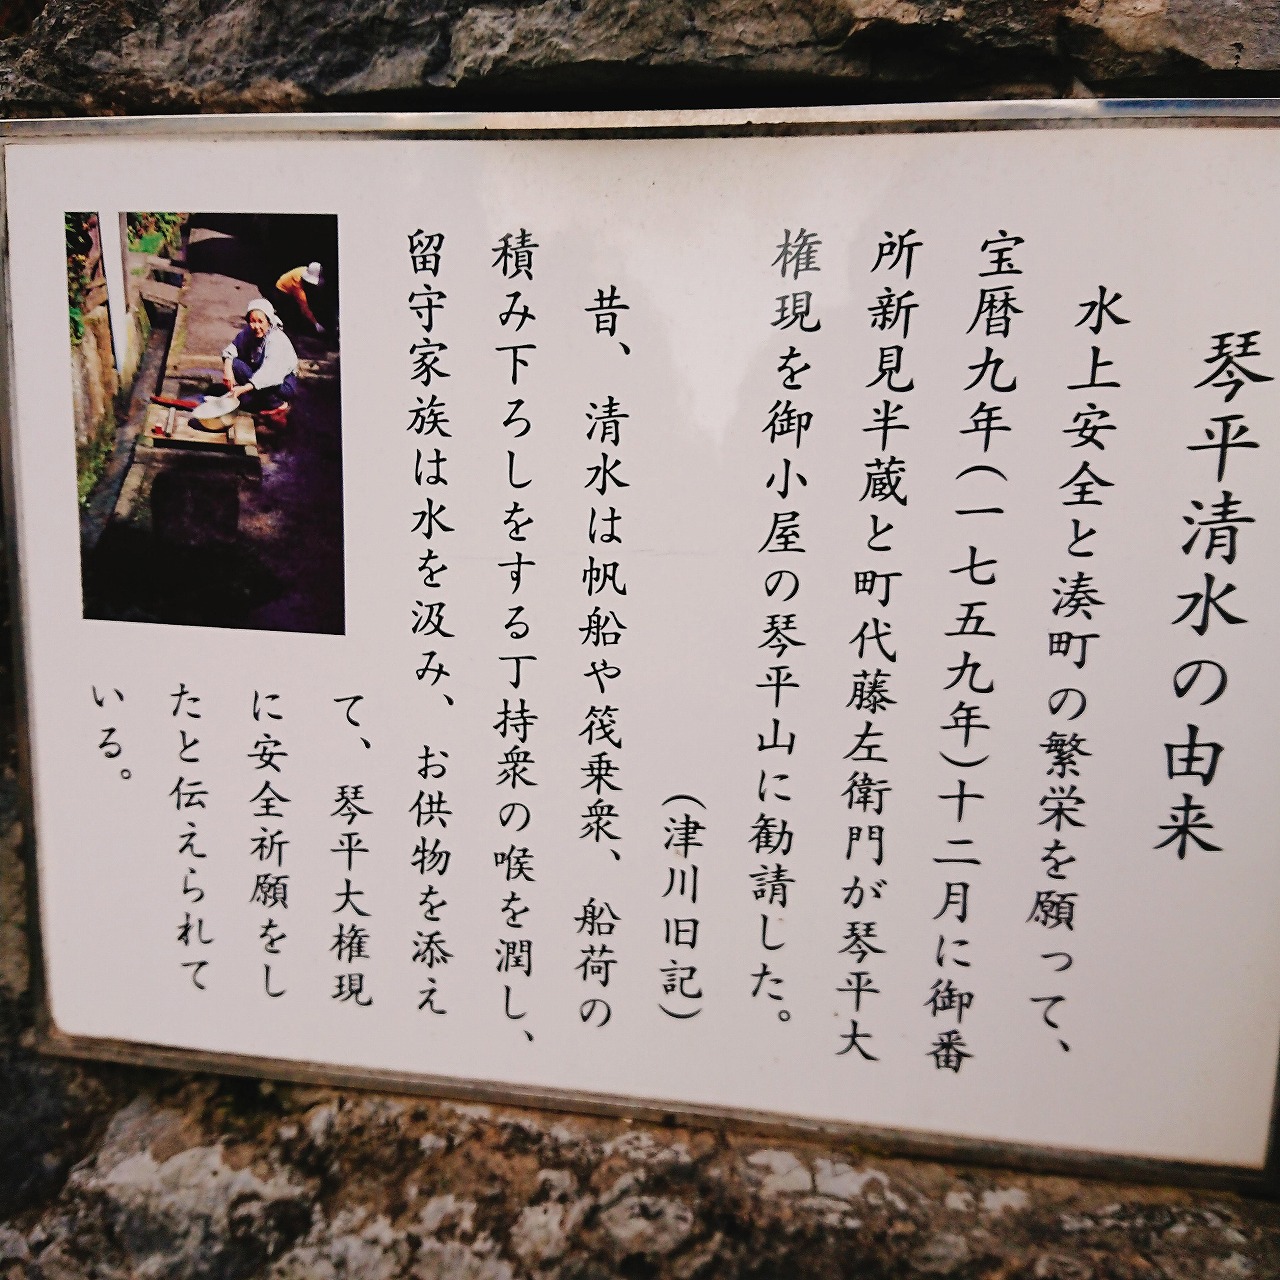 琴平清水の由来
水上安全と湊町の繁栄を願って、
宝暦九年(一七五九年)十二月に御番
所新見半蔵と町代藤左衛門が琴平大
権現を御小屋の琴平山に勧請した。
(津川旧記)
昔、清水は帆船や筏乗衆、船荷の
積み下ろしをする丁持衆の喉を潤し、
留守家族は水を汲み、お供物を添え
て、琴平大権現
に安全祈願をし
たと伝えられて
いる。